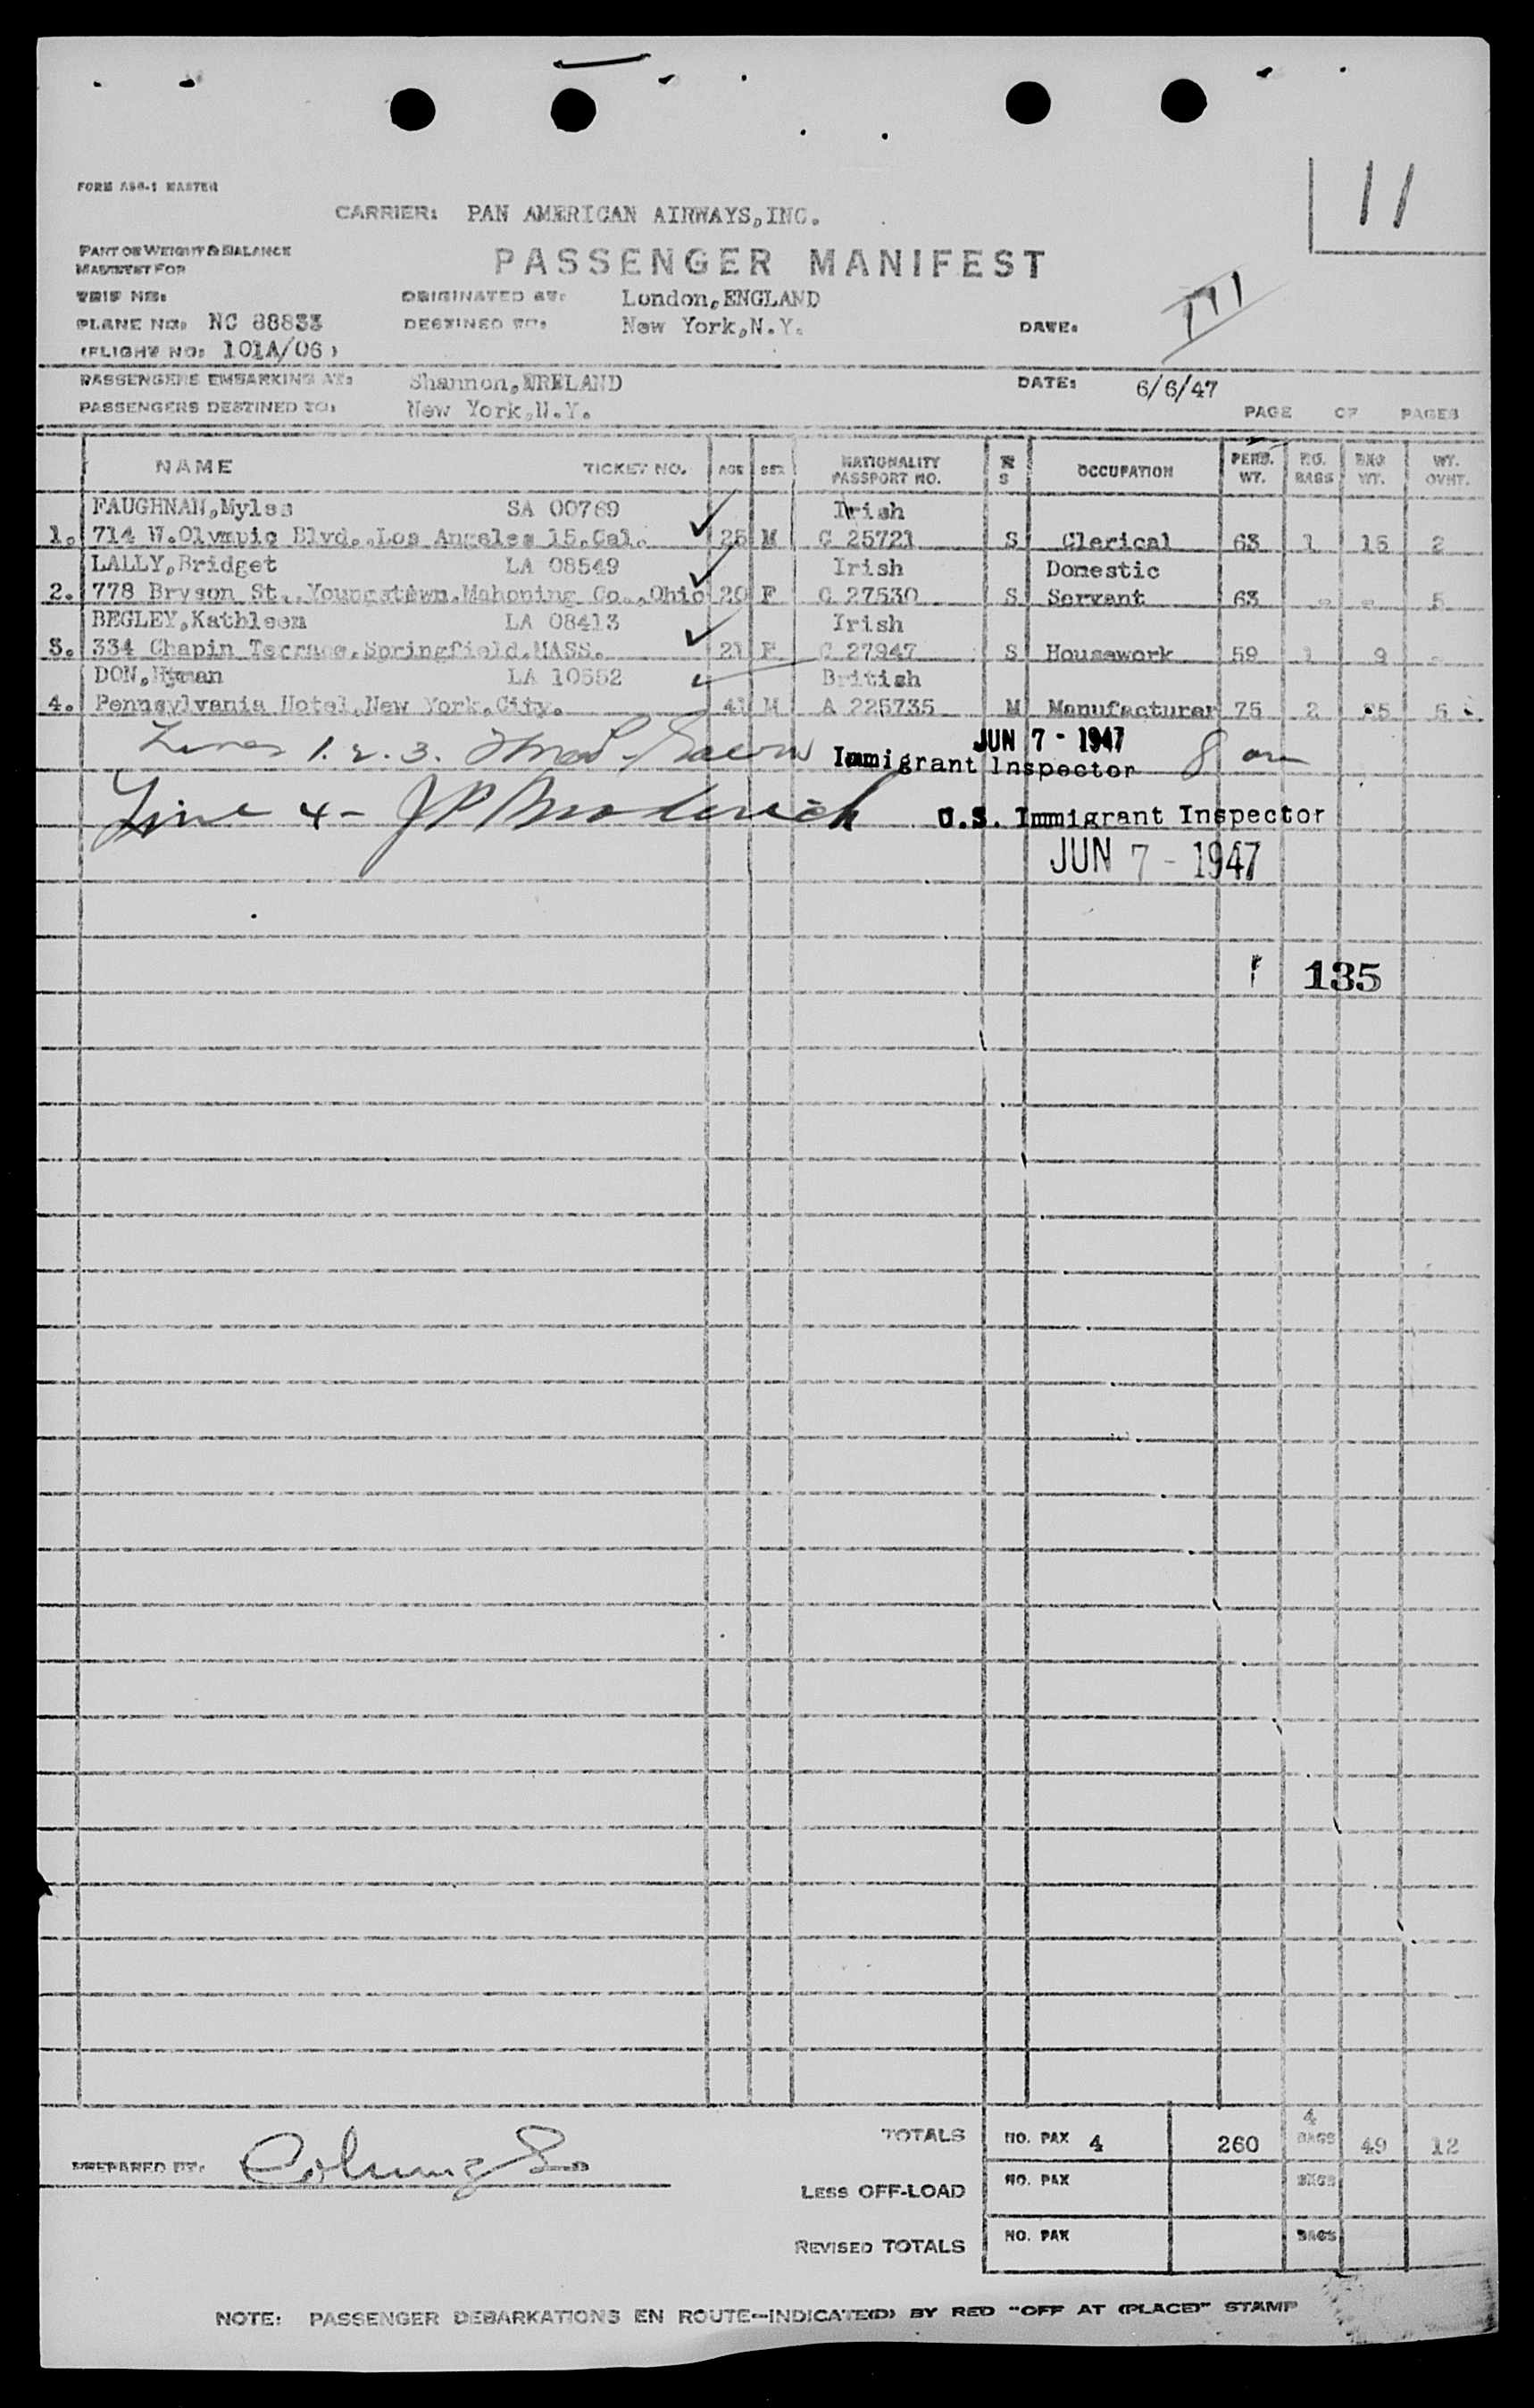 11
FORM ASG-1 MASTER
CARRIER: PAN AMERICAN AIRWAYS,INC.
PART OF WEIGHT & BALANCE
MANIFEST FOR
PASSENGER MANIFEST
TRIP NO: ORIGINATED AT: London,ENGLAND
PLANE NO: NC 88833 DESTINED TO: New York,N.Y. DATE:
(FLIGHT NO: 101A/06)
PASSENGERS EMBARKING AT: Shannon,ERELAND DATE: 6/6/47
PASSENGERS DESTINED TO: New York,N.Y. PAGE OF PAGES
NAME TICKET NO. AGE SEX NATIONALITY PASSPORT NO. M S OCCUPATION PERS. WT. NO. BAGS BAG WT. WT. OVHT.
FAUGHNAN,Myles SA 00769 Irish
1. 714 W.Olympic Blvd.,Los Angeles 15,Cal. 25 M C 25721 S Clerical 63 1 15 2
LALLY,Bridget LA 08549 Irish Domestic
2. 778 Bryson St.,Youngstown,Mahoning Co.,Ohio 20 F C 27530 S Servant 63 - - 5
BEGLEY,Kathleen LA 08413 Irish
3. 334 Chapin Terrace,Springfield,MASS. 21 F C 27947 S Housework 59 1 9 -
DON,Hyman LA 10552 British
4. Pennsylvania Hotel,New York,City. 41 M A 225735 M Manufacturer 75 2 25 5
Lines 1. 2. 3. JUN 7 - 1947
Immigrant Inspector
Line 4 - JP Broderick U.S. Immigrant Inspector
JUN 7 - 1947
135
TOTALS NO. PAX 4 260 4 BAGS 49 12
PREPARED BY:
LESS OFF-LOAD NO. PAX BAGS
REVISED TOTALS NO. PAX BAGS
NOTE: PASSENGER DEBARKATIONS EN ROUTE-INDICATE(D) BY RED "OFF AT (PLACE)" STAMP